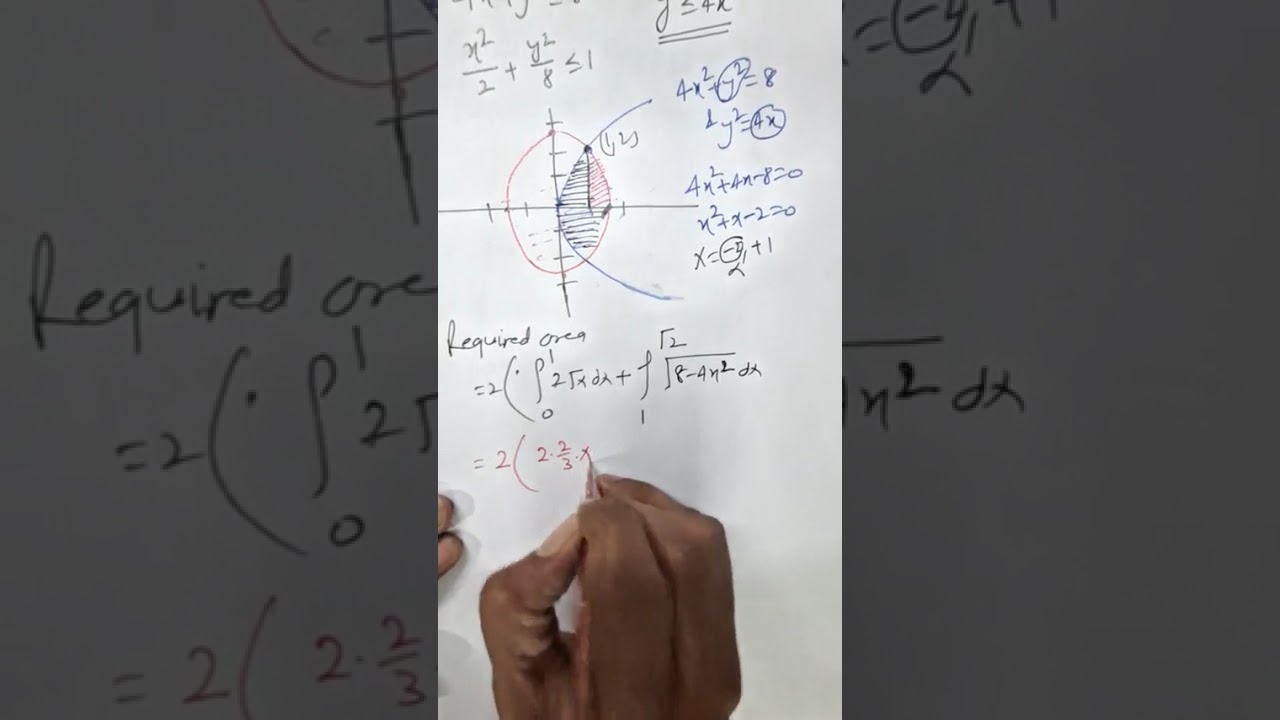 y² ≤ 4x
x²/2 + y²/8 ≤ 1
4x² + y² = 8
& y² = 4x
(1, 2)
4x² + 4x - 8 = 0
x² + x - 2 = 0
x = -2, + 1
Required area
= 2( ∫₀¹ 2√x dx + ∫₁^√2 √8-4x² dx
= 2( 2·2/3·x